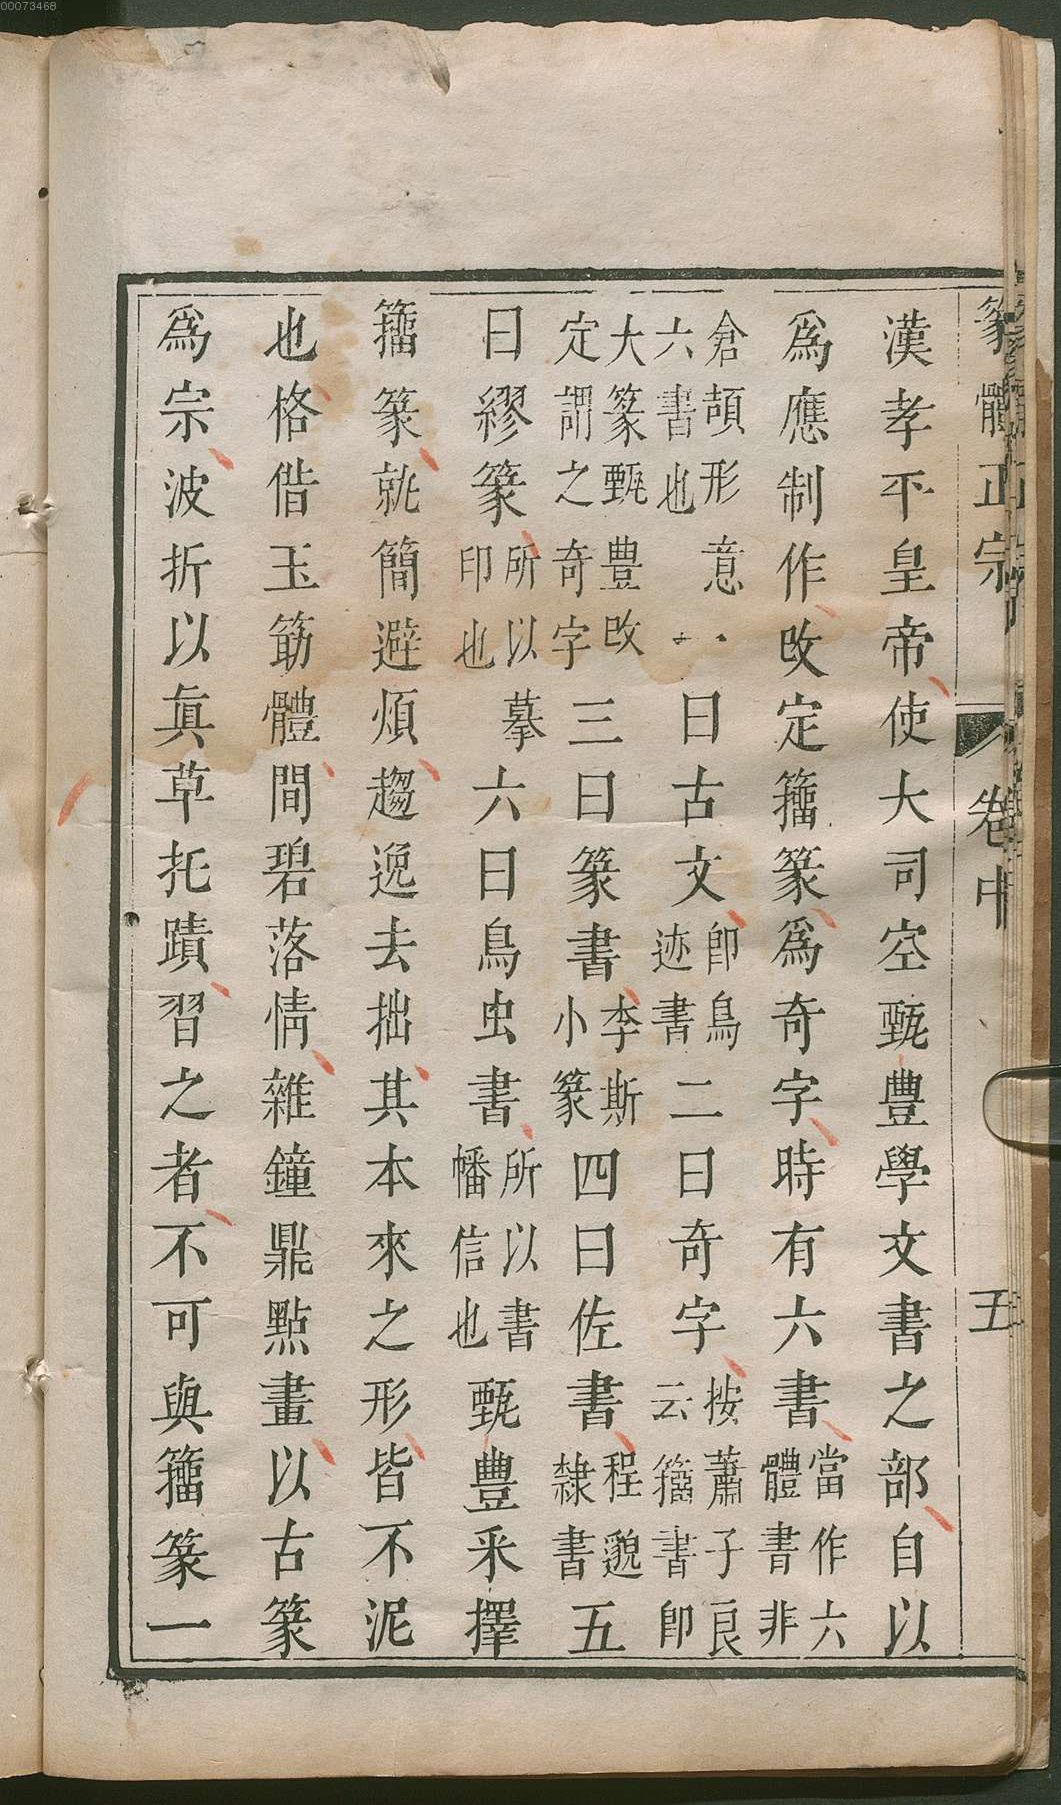 00073468
篆體正宗 卷中 五
漢孝平皇帝使大司空甄豐學文書之部自以
爲應制作改定籀篆爲奇字時有六書當作六體書非
倉頡形意六書也一曰古文卽鳥迹書二曰奇字按蕭子良云籀書卽
大篆甄豐改定謂之奇字三曰篆書李斯小篆四曰佐書程邈隸書五
曰繆篆所以摹印也六曰鳥虫書所以書幡信也甄豐釆擇
籀篆就簡避煩趨逸去拙其本來之形皆不泥
也格借玉筯體間碧落情雜鐘鼎點畫以古篆
爲宗波折以眞草托蹟習之者不可與籀篆一